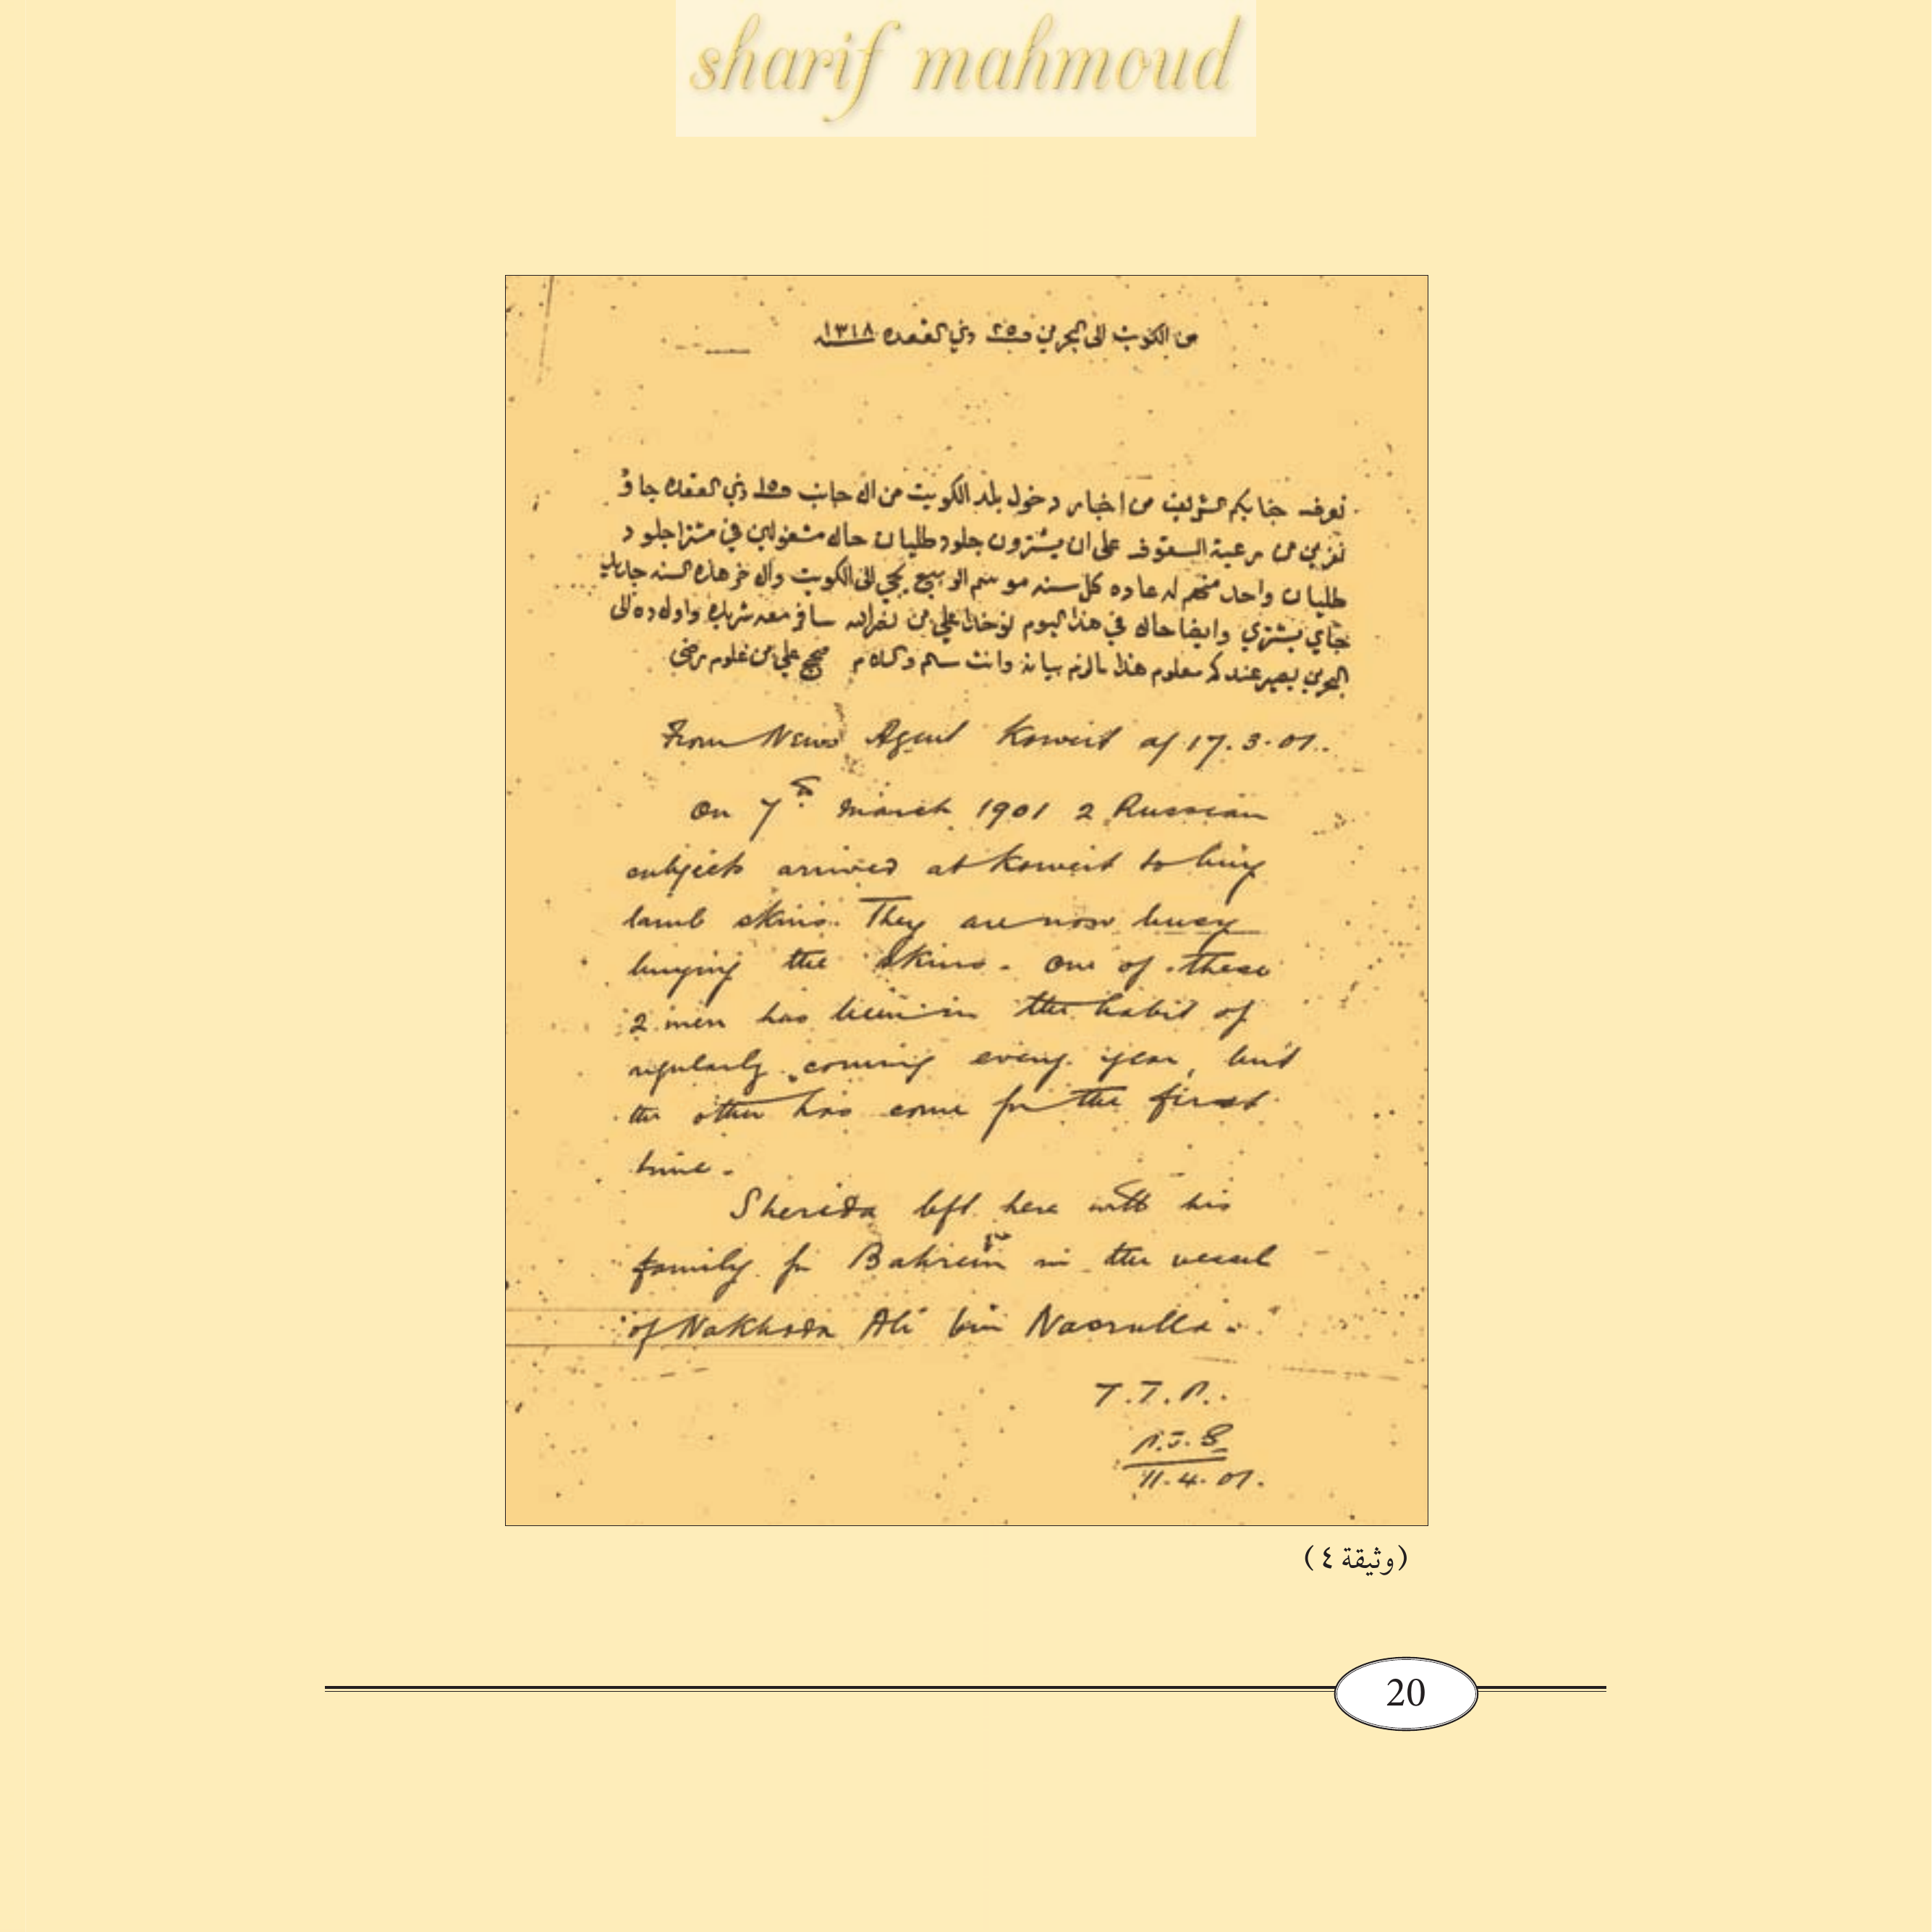 sharif mahmoud
من الكويت الى البحرين في ٢٥ ذي القعده سنه ١٣١٨
نعرف جنابكم الشريف من اخبار دخول بلد الكويت من الاجانب في ١٥ ذي القعده جاؤ
نفرين من رعية السقوف على ان يشترون جلود طليان حاله مشغولين في مشترا جلود
طليان واحد منهم له عاده كل سنه موسم الربيع يجي الى الكويت والاخر هاذه السنه
جاي يشتري وايضا حاله في هذا اليوم نوخذا علي بن نصرالله سافر معه شريده واولاده الى
البحرين يصير عندكم معلوم هذا مالزم بيانه وانت سالم والسلام صح علي بن غلوم رضى
From News Agent Koweit of 17.3.01.
On 7th March 1901 2 Russian
subjects arrived at Koweit to buy
lamb skins. They are now busy
buying the skins. One of these
2 men has been in the habit of
regularly coming every year, but
the other has come for the first
time.
Sherida left here with his
family for Bahrein in the vessel
of Nakhoda Ali bin Nasrulla.
T.T.P.
11.4.01.
(وثيقة ٤)
20